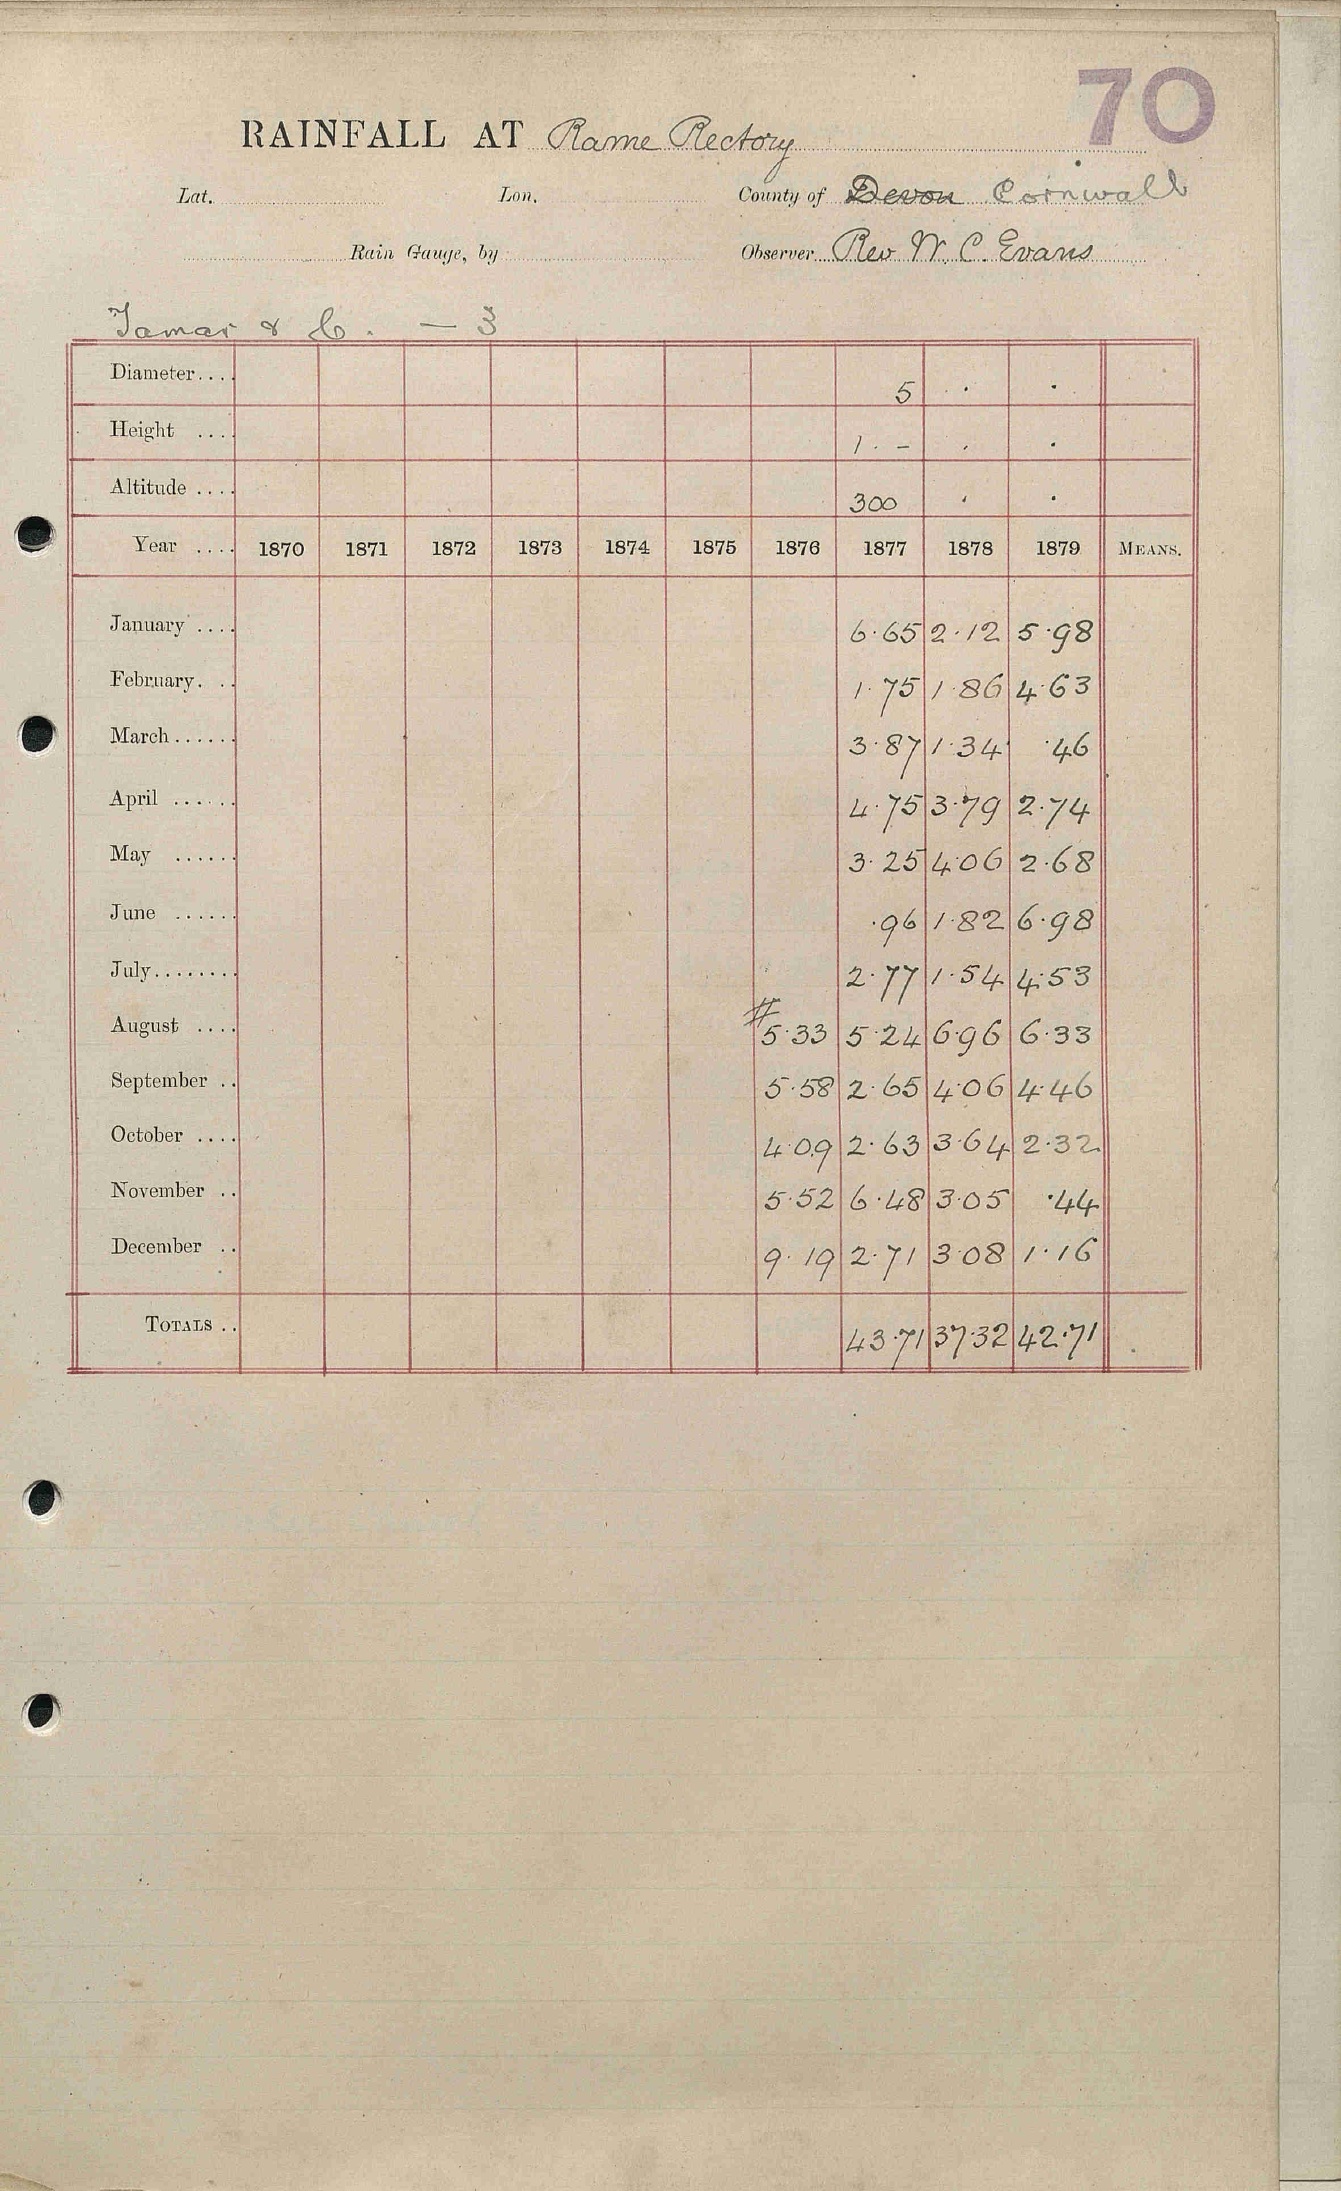 70
RAINFALL AT Rame Rectory
Lat. Lon. County of Devon Cornwall
Rain Gauge, by Observer Rev W. C. Evans
Tamar & C. — 3
Diameter.... 5 . .
Height .... 1 . – . .
Altitude .... 300 . .
Year .... 1870 1871 1872 1873 1874 1875 1876 1877 1878 1879 MEANS.
January .... 6.65 2.12 5.98
February. .. 1.75 1.86 4.63
March...... 3.87 1.34 .46
April ...... 4.75 3.79 2.74
May ...... 3.25 4.06 2.68
June ...... .96 1.82 6.98
July........ 2.77 1.54 4.53
August .... # 5.33 5.24 6.96 6.33
September .. 5.58 2.65 4.06 4.46
October .... 4.09 2.63 3.64 2.32
November .. 5.52 6.48 3.05 .44
December .. 9.19 2.71 3.08 1.16
TOTALS .. 43.71 37.32 42.71